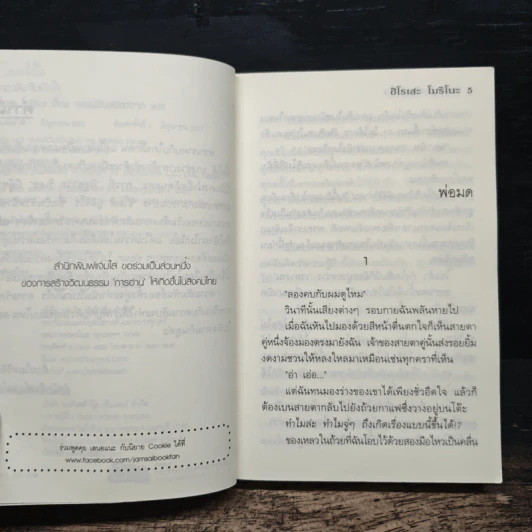 สำนักพิมพ์แจ่มใส ขอร่วมเป็นส่วนหนึ่ง
ของการสร้างวัฒนธรรม 'การอ่าน' ให้เกิดขึ้นในสังคมไทย
ร่วมพูดคุย เสนอแนะ กับนิยาย Cookie ได้ที่
www.facebook.com/jamsaibooktan
ฮิโรเสะ โมริโนะ 5
พ่อมด
1
"ลองคบกับผมดูไหม"
วินาทีนั้นเสียงต่างๆ รอบกายฉันพลันหายไป
เมื่อฉันหันไปมองด้วยสีหน้าตื่นตกใจก็เห็นสายตา
คู่หนึ่งจ้องมองตรงมายังฉัน เจ้าของสายตาคู่นั้นส่งรอยยิ้ม
งดงามชวนให้หลงใหลมาเหมือนเช่นทุกคราที่เห็น
"อ๋า เอ๋อ..."
แต่ฉันทนมองร่างของเขาได้เพียงชั่วอึดใจ แล้วก็
ต้องเบนสายตากลับไปยังถ้วยกาแฟซึ่งวางอยู่บนโต๊ะ
ทำไมล่ะ ทำไมจู่ๆ ถึงเกิดเรื่องแบบนี้ขึ้นได้!?
ของเหลวในถ้วยที่ฉันโอบไว้ด้วยสองมือไหวเป็นคลื่น